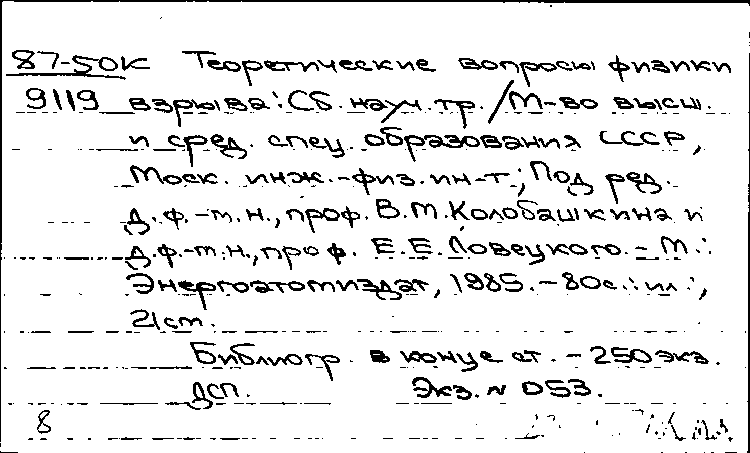 87-50К Теоретические вопросы физики
9119 взрыва: Сб. науч. тр. / М-во высш.
и сред. спец. образования СССР,
Моск. инж.-физ. ин-т; Под ред.
Д.ф.-м.н., проф. В.М. Колобашкина и
Д.ф.-м.н., проф. Е.Е. Ловецкого. - М.:
Энергоатомиздат, 1985. - 80с.: ил.;
21см.
Библиогр. в конце ст. - 250 экз.
ДСП. Экз. N 053.
8